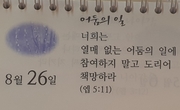 어둠의 일
너희는
열매 없는 어둠의 일에
참여하지 말고 도리어
책망하라
(엡 5:11)
8월 26일